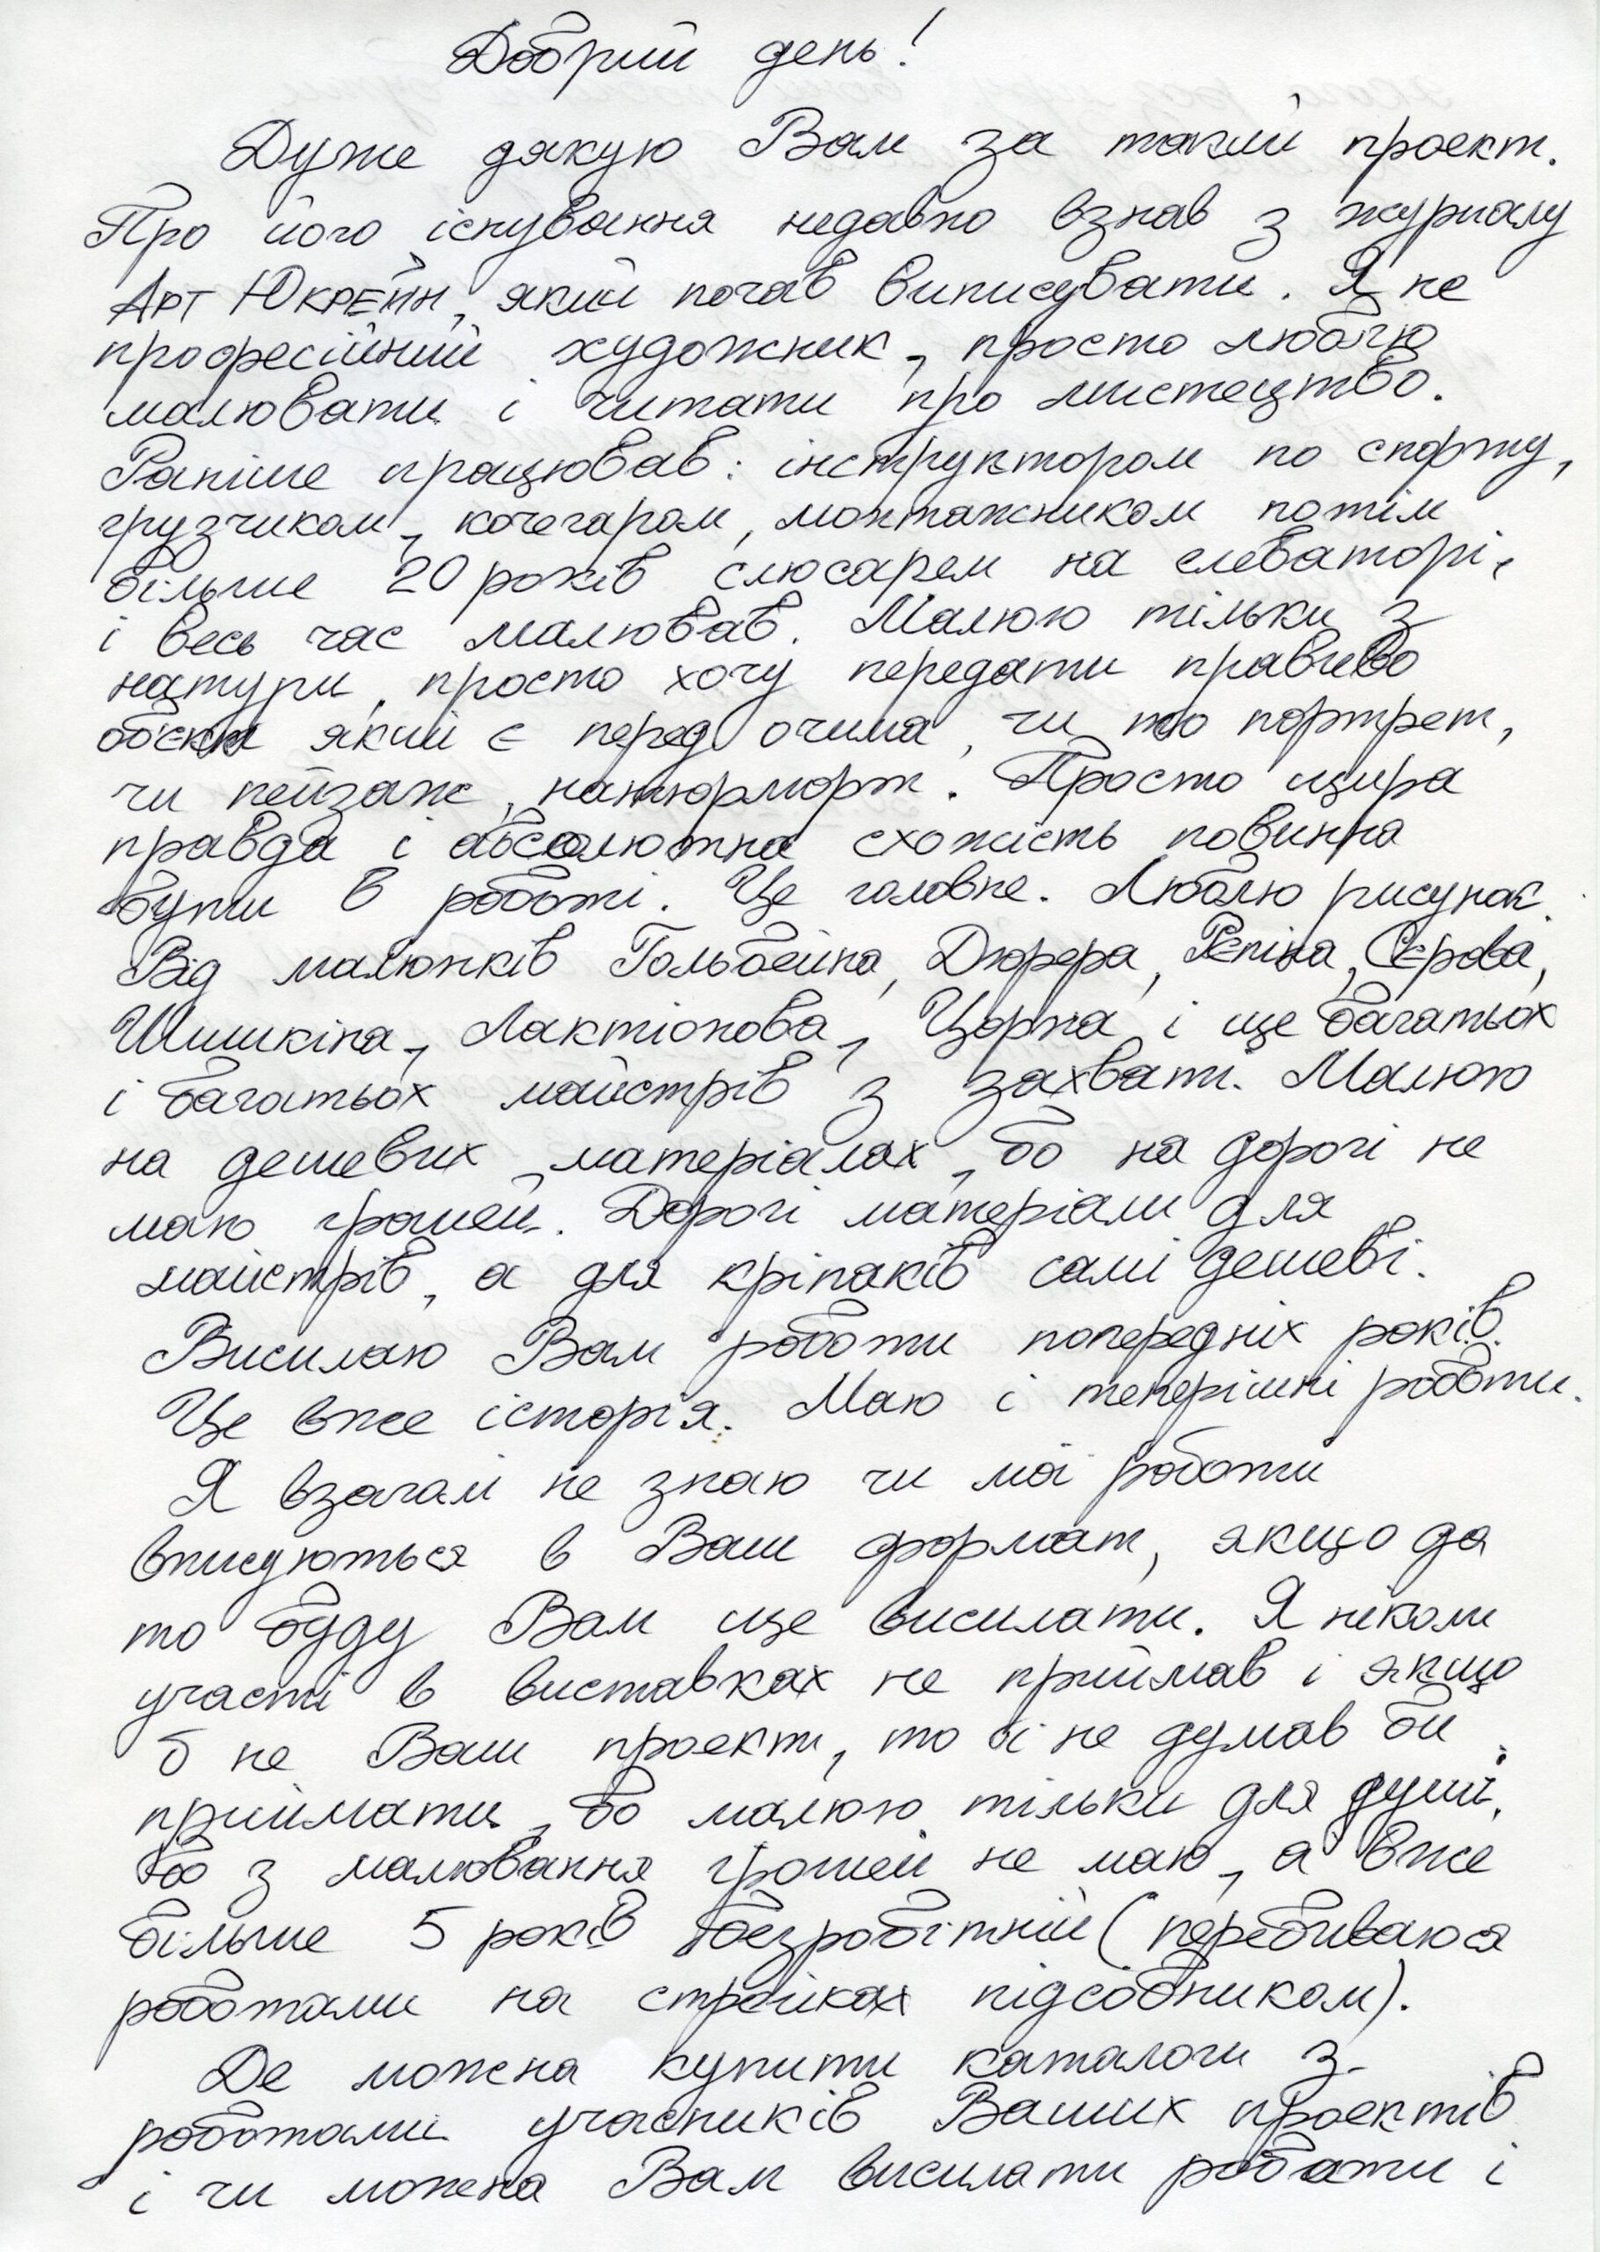 Добрий день!
Дуже дякую Вам за такий проект.
Про його існування недавно взнав з журналу
Арт Юкрейн, який почав виписувати. Я не
професійний художник, просто люблю
малювати і читати про мистецтво.
Раніше працював: інструктором по спорту,
грузчиком, кочегаром, монтажником потім
більше 20 років слюсарем на елеваторі,
і весь час малював. Малюю тільки з
натури, просто хочу передати правдиво
об'єкт який є перед очима, чи то портрет,
чи пейзаж, натюрморт. Просто щира
правда і абсолютна схожість повинна
бути в роботі. Це головне. Люблю рисунок.
Від малюнків Гольбейна, Дюрера, Рєпіна, Сєрова,
Шишкіна, Лактіонова, Цорна і ще багатьох
і багатьох майстрів з захваті. Малюю
на дешевих матеріалах, бо на дорогі не
маю грошей. Дорогі матеріали для
майстрів, а для кріпаків самі дешеві.
Висилаю Вам роботи попередніх років.
Це вже історія. Маю і теперішні роботи.
Я взагалі не знаю чи мої роботи
вписуються в Ваш формат, якщо да
то буду Вам ще висилати. Я ніколи
участі в виставках не приймав і якщо
б не Ваш проект, то і не думав би
приймати, бо малюю тільки для душі,
бо з малювання грошей не маю, а вже
більше 5 років безробітній (перебиваюся
роботами на стройках підсобником).
Де можна купити каталоги з
роботами учасників Ваших проектів
і чи можна Вам висилати роботи і